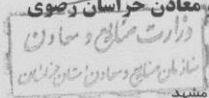 معادن خراسان رضوی
وزارت صنایع و معادن
سازمان صنایع و معادن استان خراسان
مشهد